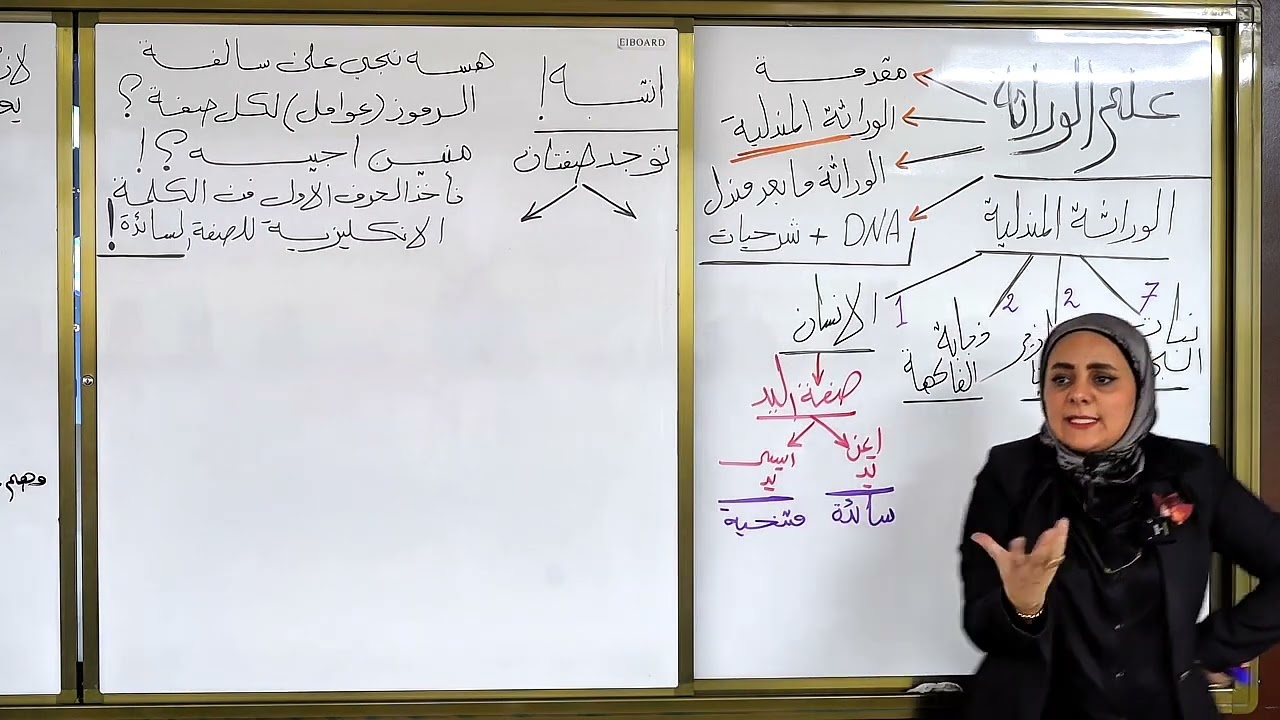 علم الوراثة
مقدمة
الوراثة المندلية
الوراثة ما بعد مندل
DNA + شرحيات
الوراثة المندلية
7
2
2
1
نبات
ذبابة
الفاكهة
الانسان
صفة اليد
ايمن
يد
سائدة
ايسر
يد
متنحية
EIBOARD
انتبه!
توجد صفتان
هسه نجي على سالفة
الرموز (عوامل) لكل صفة؟
منين اجيبه؟!
نأخذ الحرف الاول من الكلمة
الانكليزية للصفة السائدة!
وهم